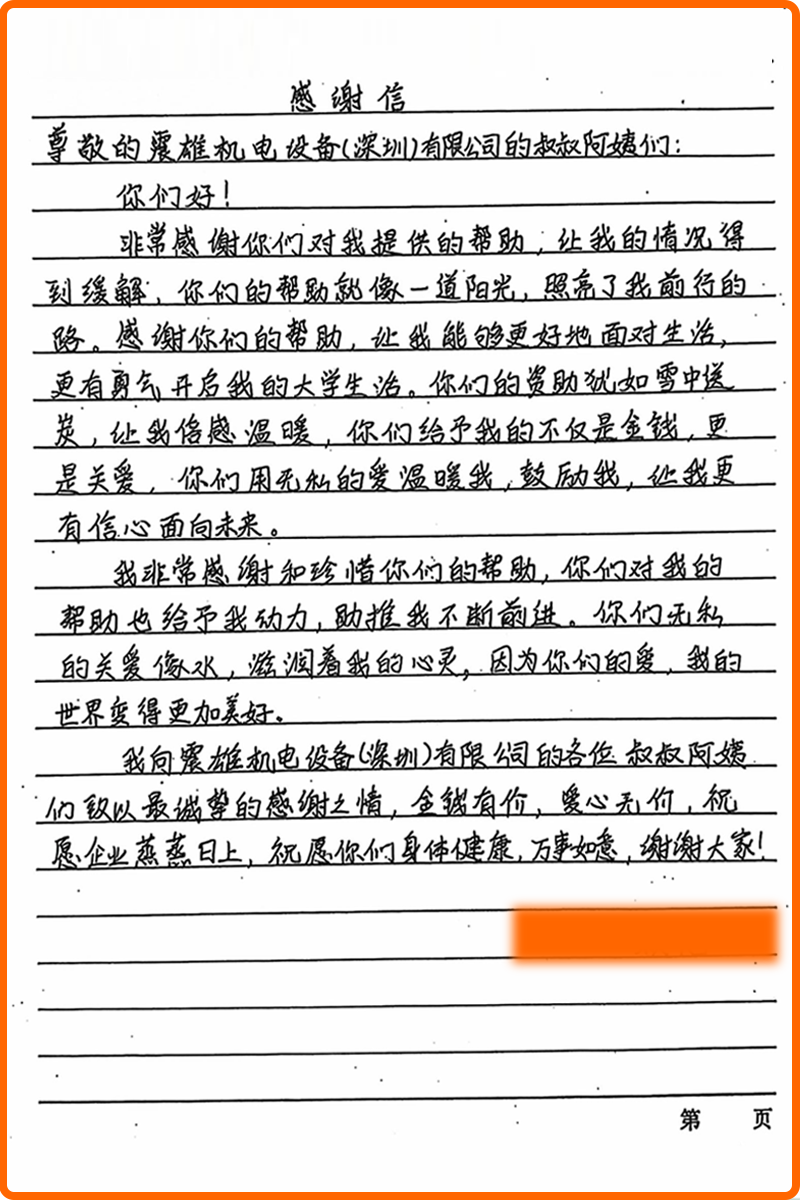 感谢信
尊敬的震雄机电设备(深圳)有限公司的叔叔阿姨们:
你们好!
非常感谢你们对我提供的帮助,让我的情况得
到缓解,你们的帮助就像一道阳光,照亮了我前行的
路。感谢你们的帮助,让我能够更好地面对生活,
更有勇气开启我的大学生活。你们的资助犹如雪中送
炭,让我倍感温暖,你们给予我的不仅是金钱,更
是关爱,你们用无私的爱温暖我,鼓励我,让我更
有信心面向未来。
我非常感谢和珍惜你们的帮助,你们对我的
帮助也给予我动力,助推我不断前进。你们无私
的关爱像水,滋润着我的心灵,因为你们的爱,我的
世界变得更加美好。
我向震雄机电设备(深圳)有限公司的各位叔叔阿姨
们致以最诚挚的感谢之情,金钱有价,爱心无价,祝
愿企业蒸蒸日上,祝愿你们身体健康,万事如意,谢谢大家!
第 页